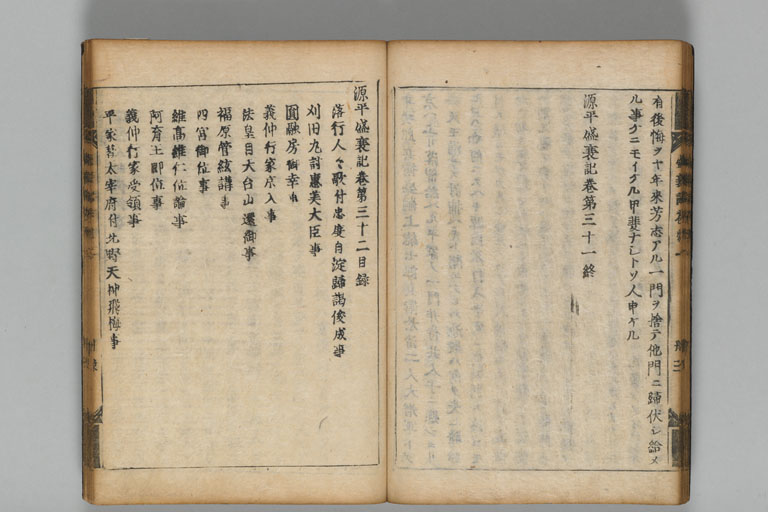 有後悔ヲヤ年来芳志アル一門ヲ捨テ他門ニ歸伏シ給メ
ル事ゲニモイケル甲斐ナシトソ人申ケル
源平盛衰記巻第三十一終
源平盛衰記巻第三十二目録
落行人々歌付忠度自淀歸謁俊成事
刈田丸討惠美大臣事
圓融房御幸事
義仲行家京入事
法皇自天台山還御事
福原管絃講事
四宮御位事
維高維仁位論事
阿育王即位事
義仲行家受領事
平家著太宰府付北野天神飛梅事